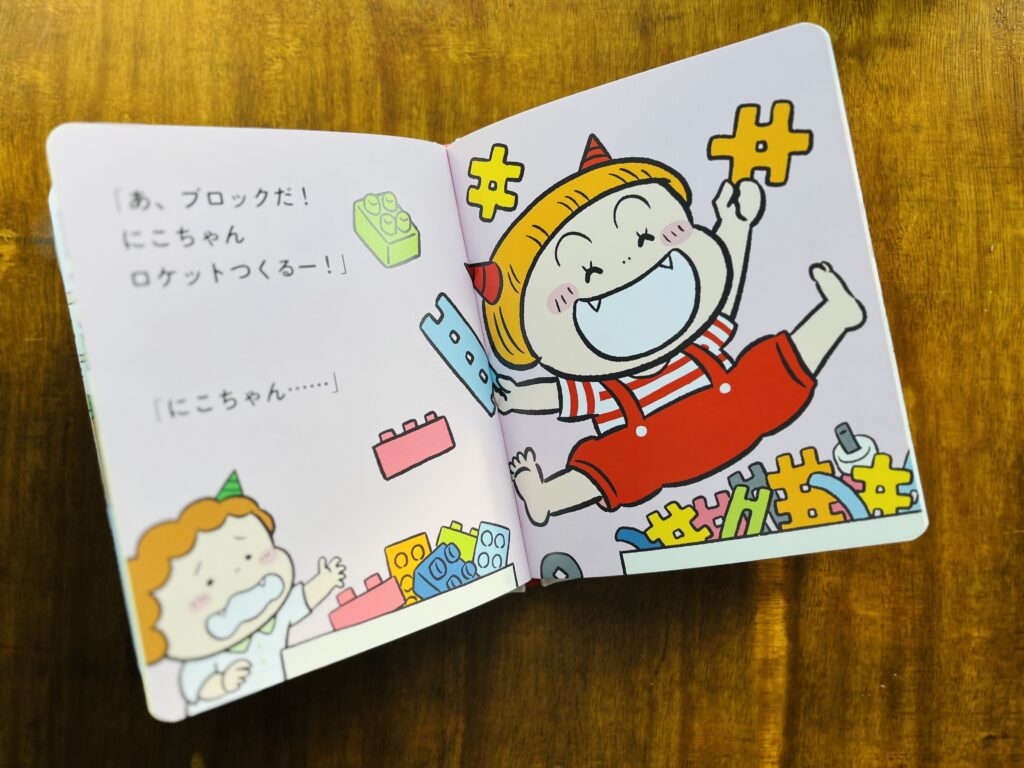 「あ、ブロックだ！
にこちゃん
ロケットつくるー！」
「にこちゃん……」